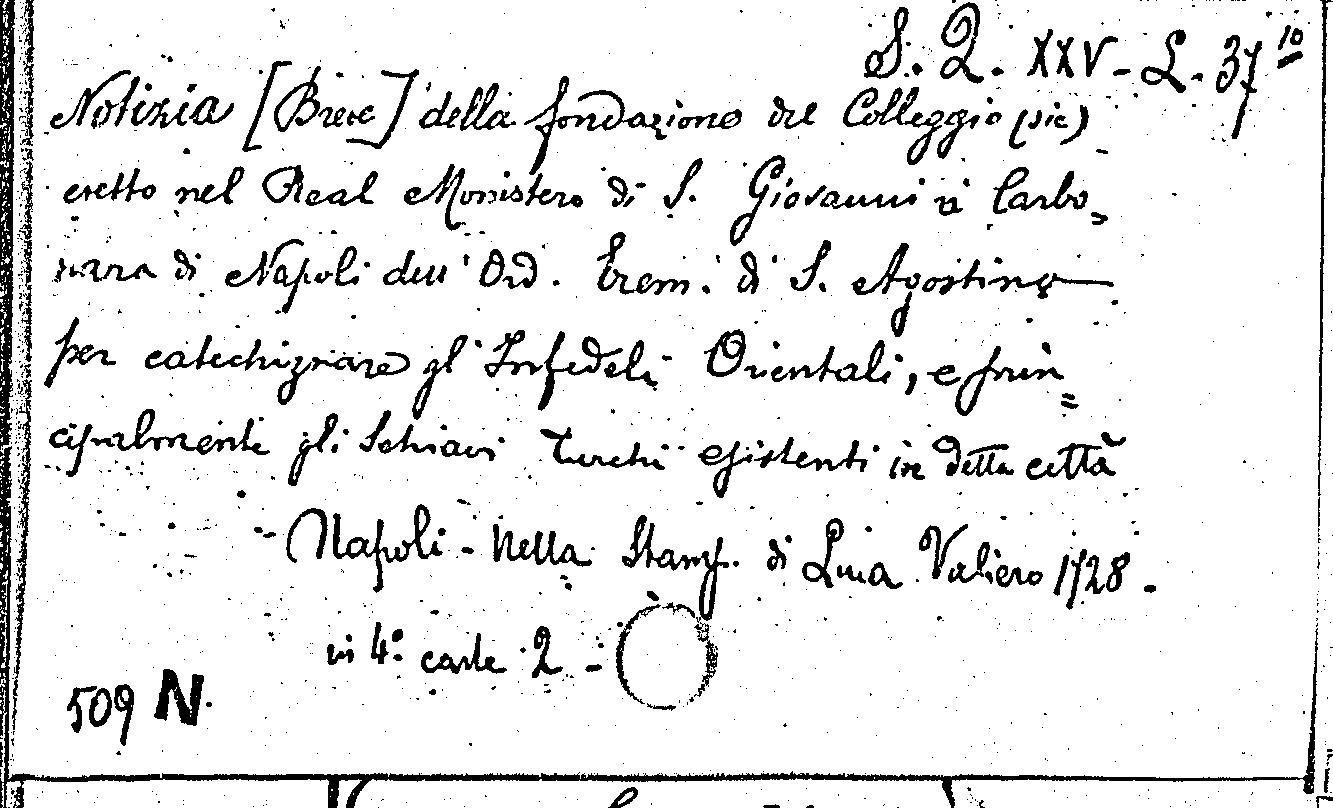 S. Q. XXV - L. 37 10
Notizia [Breve] della fondazione del Colleggio (sic)
eretto nel Real Monistero di S. Giovanni a Carbo=
nara di Napoli dell' Ord. Erem. di S. Agostino
per catechizzare gl' Infedeli Orientali, e prin=
cipalmente gli Schiavi Turchi esistenti in detta città
- Napoli - Nella Stamp. di Luca Valiero 1728.
in 4º. carte 2 -
509 N.